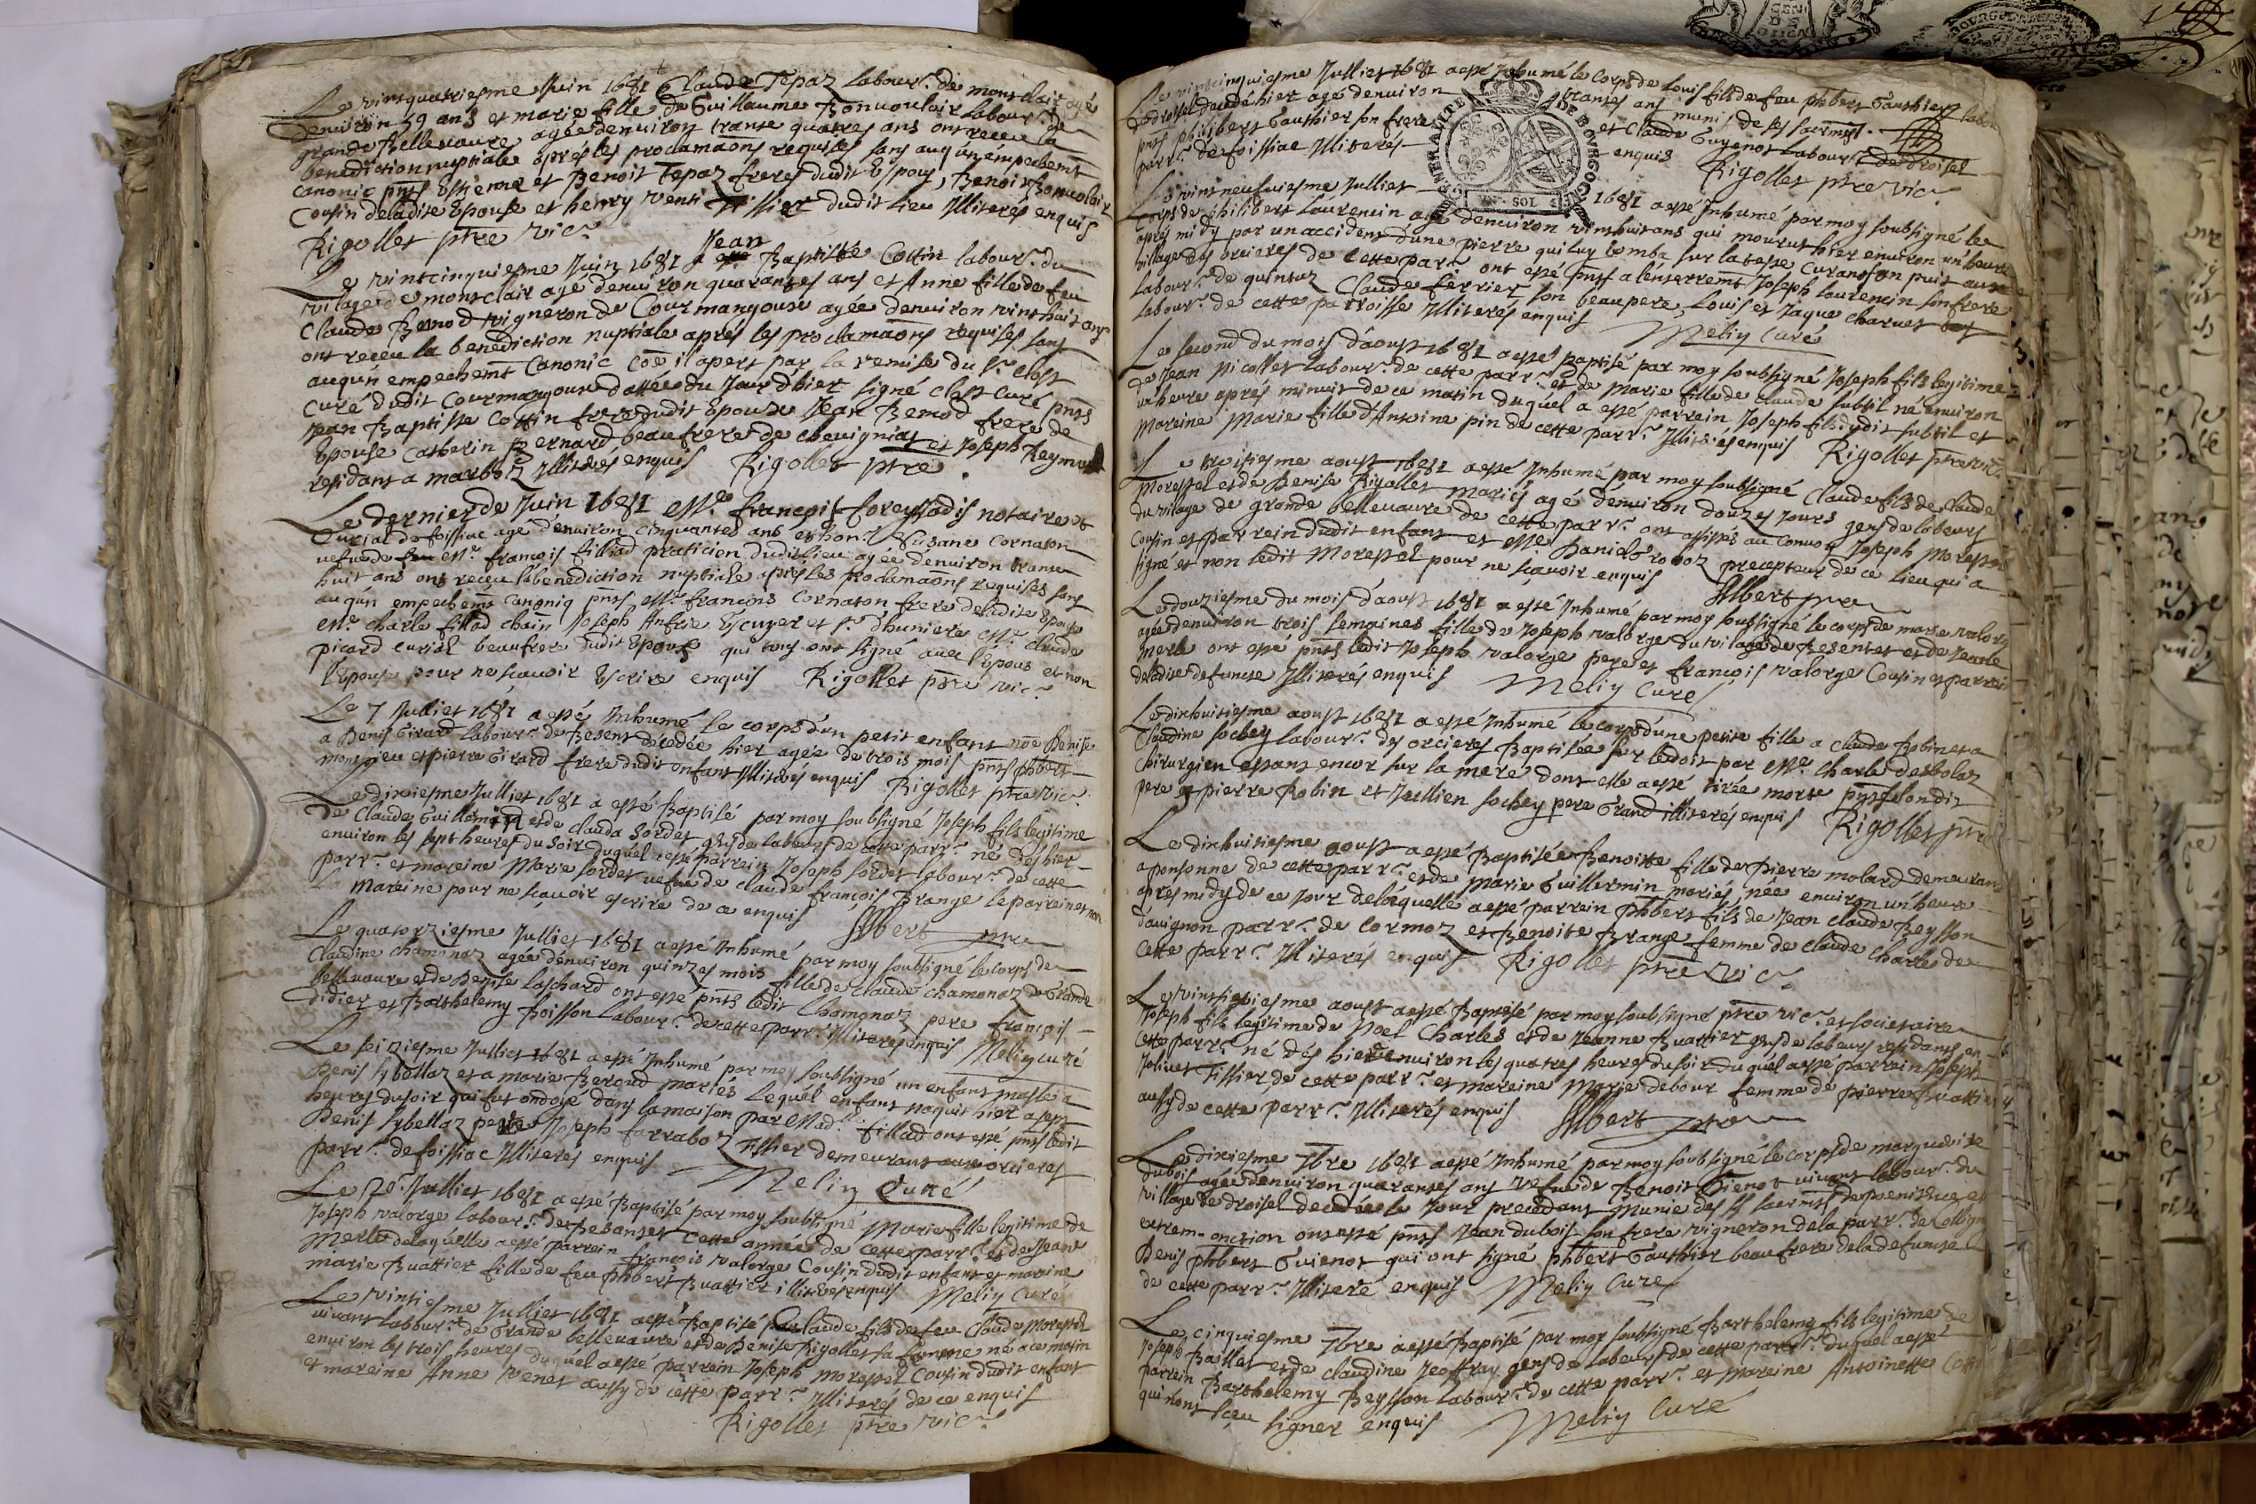 Le vintquatriesme Juin 1681 Claude Tepaz labour.r de montclair agé
denuiron 59 ans et marie fille de Guillaume Bonuouloir labour.r de
grande Bellevaure agée denuiron trante quatres ans ont receu la
benediction nuptiale apres les proclamaons requises sans auqun empechemt
canonic pnts Estienne et Benoit Tepaz freres dudit Espoux, Benoit Bonuoloir
Cousin deladite Epouse et henry venti Tissier dudit lieu Illiterés enquis
Rigollet ptre vic.re
Le vintcinquiesme Juin 1681 Jean Baptiste Cottin labour.r du
vilage de montclair agé denuiron quarantes ans et Anne fille de feu
Claude Bernod vigneron de Courmangoux agée denuiron vinthuit ans
ont receu la benediction nuptiale aprés les proclamaons requises sans
auqun empechemt Canonic coe il apert par la remise du Sr. Clost
Curé dudit Courmangoux dattée du Jour dhier signé Clost curé pnts
Jean Baptiste Cottin frere dudit Epoux Jean Bernod frere de
Epouse Catherin Bernard beaufrere de cheuignias et Joseph Reymond
residant a marboz Illiterés enquis Rigollet ptre
Le dernier de Juin 1681 Me. françois foreyssadis notaire et
Curial de foissiac agé denuiron cinquantes ans et hon. Susane Cornaton
uefue de feu Mr. françois filliad praticien dudit lieu agée denuiron trante
huit ans ont receu la benediction nuptiale aprés les proclamaons requises sans
auqun empechemt canoniq pnts Mr. françois Cornaton frere deladite Epouse
Me. charle fillod Joseph Anfrie Escuyer et Sr. dhuniere Me. claude
picard curial beaufrere dudit Epoux qui tous ont signé auec lEpoux et non
lEpouse pour ne scauoir Escrire enquis Rigollet ptre vic.re
Le 7 Julliet 1681 a esté Inhumé le corps dun petit enfant noe Denise
a Denis Girard labour.r de Besent décedée hier agée de trois mois pnts phbert
monssieu et pierre Girard frere dudit enfant Illiterés enquis Rigollet ptre vic.
Le dixiesme Julliet 1681 a esté Baptisé par moy soubsigné Joseph fils legitime
de Claude Guillomin et de clauda Sordet gens de labeurs de cette parr.e né des hier
enuiron les sept heures du soir duquél a esté parrein Joseph Sordet labour.r de cette
parr.e et mareine Marie Sordet uefue de claude françois Brange le parrein et non
la mareine pour ne scauoir escrire de ce enquis Albert ptre
Le quatorziesme Julliet 1681 a esté Inhumé par moy soubsigné le corps de
Claudine chamonaz agée denuiron quinzes mois fille de claude chamonaz de Grande
bellevaure et de Denise Laschard ont esté pnts ledit Chamonaz pere françois
didier et Barthelemy Boisson labour.r de cette parr.e Illiterés enquis Meliy curé
Le seiziesme Julliet 1681 a esté Inhumé par moy soubsigné un enfant masle a
Denis sybellaz et a marie Beraud mariés lequél enfant naquit hier a sept
heures dusoir qui fut ondoié dans la maison par Mad.lle fillad ont esté pnts ledit
Denis sybellaz pere Joseph farraboz Tissier demeurant aux orcieres
parr.e de foissiac Illiterés enquis Meliy Curé
Le 20.e Julliet 1681 a esté Baptisé par moy soubsigné Marie fille legitime de
Joseph valorge labour.r de Besantet cette année de cette parr.e et de Jeane
Merle delaquélle a esté parrein françois valorge Cousin dudit enfant et mareine
marie Buattier fille de feu phbert Buattier illiterés enquis Meliy Curé
Le vintiesme Julliet 1681 a esté Baptisé claude fils de feu claude Morestel
viuant labour.r de Grande bellevaure et de Denise Rigollet sa femme né a ce matin
enuiron les trois heures duquel a esté parrein Joseph morestel Cousin dudit enfant
et mareine Anne venet aussy de cette parr.e Illiterés de ce enquis
Rigollet ptre vic.re
Le vintcinquiesme Julliet 1681 a esté Inhumé le Corps de Louis fils de feu phbert Gauthier labou
de droisel décedé hier agé denuiron trantes ans munis de ses sacrmts.
pnts philibert Gauthier son frere et Claude Guyenot labour.r de droisel
parr.e de foissiac Illiterés enquis Rigollet ptre vic.re
GENERALITE DE BOURGOGNE
VN SOL 4
Le vintneufuiesme Julliet 1681 a esté Inhumé par moy soubsigné le
Corps de philibert Laurencin agé denuiron vinthuit ans qui mourut hier enuiron un heure
apres midy par un accident dune pierre qui luy tomba sur la teste curant un puit au
vilage des bruieres de cette par.r ont esté pnts a lenterremt Joseph Laurencin son frere
labour.r de quintuz Claude ferrier son beaupere, Louis et Jaque charnet
labour.r de cette parroisse Illiterés enquis Meliy Curé
Le second du mois d'aoust 1681 a esté Baptisé par moy soubsigné Joseph fils legitime
de Jean Nicollet labour.r de cette parr.e et de Marie fille de claude subtil né enuiron
un heure aprés minuit de ce matin duquél a esté parrein Joseph fils dudit subtil et
mareine Marie fille d'Antoine pin de cette parr.e Illiterés enquis Rigollet ptre vic.
Le troisiesme aoust 1681 a esté Inhumé par moy soubsigné Claude fils de claude
Morestel et de Denise Rigollet mariés agé denuiron douzes Jours gens de labeurs
du vilage de grande bellevaure de cette parr.e ont assistés au Conuoy Joseph Morestel
Cousin et parrein dudit enfant et Me. Daniel precepteur de ce lieu qui a
signé et non ledit Morestel pour ne scauoir enquis Albert ptre
Le douziesme du mois d'aoust 1681 a esté Inhumé par moy soubsigné le corps de marie valorge
agée denuiron trois semaines fille de Joseph valorge du vilage de Besentet et de Jeane
merle ont esté pnts ledit Joseph valorge pere et françois valorge Cousin et parrein
de ladite defuncte Illiterés enquis Meliy Curé
Le dixhuitiesme aoust 1681 a esté Inhumé le corps d'une petite fille a claude Robin et a
Claudine sochey labour.r des orcieres Baptisée sur le doit par Me. Charle desbolaz
Chirurgien estant encor sur la mere dont elle a esté tirée morte pnts sondit
pere pierre Robin et Jullien sochey pere Grand illiterés enquis Rigollet ptre
Le dixhuitiesme aoust a esté Baptisée Benoitte fille de pierre molard demeurant
a ponsonne de cette parr.e et de Marie Guillermin mariés, née enuiron un heure
apres midy de ce Jour de laquélle a esté parrein phbert fils de Jean claude Beysson
dauignon parr.e de cormoz et Benoite Brange femme de claude charle de
cette parr.e Illiterés enquis Rigollet ptre vic.re
Le vintsixiesme aoust a esté Baptisé par moy soubsigné ptre vic.re et societaire
Joseph fils legitime de Noel Charles et de Jeanne Buattier gens de labeurs residants en
cette parr.e né dés hier enuiron les quatres heures du soir duquél a esté parrein Joseph
Joliuet Tissier de cette parr.e et mareine Marie debour femme de pierre Buattier
aussy de cette parr.e Illiterés enquis Albert ptre
Le dixiesme 7bre 1681 a esté Inhumé par moy soubsigné le corps de marguerite
dubois agée denuiron quarantes ans vefue de Benoit Guienot viuant labour.r du
village de droisel decedée le Jour precedant Munie des SS. sacrmts de poenitence et
extrem-onction ont esté pnts Jean dubois son frere vigneron de la parr.e de Colligny
Denis phbert Guienot qui ont signé phbert Gauthier beaufrere de la defuncte
de cette parr.e Illiteré enquis Meliy Curé
Le cinquiesme 7bre a esté Baptisé par moy soubsigné Barthelemy fils legitime de
Joseph Baillet et de claudine Jeoffray gens de labeurs de cette parr.e duquel a esté
parrein Barthelemy Beysson labour.r de cette parr.e et mareine Antoinette
qui n'ont sceu signer enquis Meliy Curé